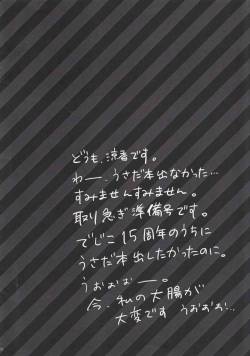 どうも、涼香です。
わー、うさだ本出なかった…
すみませんすみません。
取り急ぎ準備号です。
でじこ15周年のうちに
うさだ本出したかったのに。
うおぉぉぉー。
今、私の大腸が
大変です うおぉぉ…